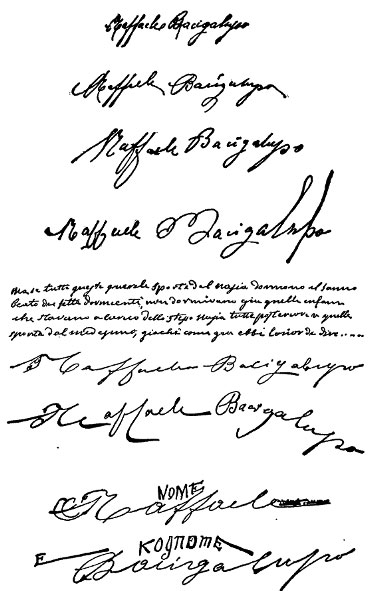 Raffaele Bacigalupo
Raffaele Bacigalupo
Raffaele Bacigalupo
Raffaele Bacigalupo
ma se tutte queste querele sporte dal dormano il sonno
beato dei sette dormienti, non dormivano già quelle
che stavano a carico dello stesso tutte posteriori a quella
sporta dal medesimo, giacchè come già ebbi l'onor di dire.....
Raffaele Bacigalupo
Raffaele Bacigalupo
NOME
Raffaele
E KOGNOME
Bacigalupo